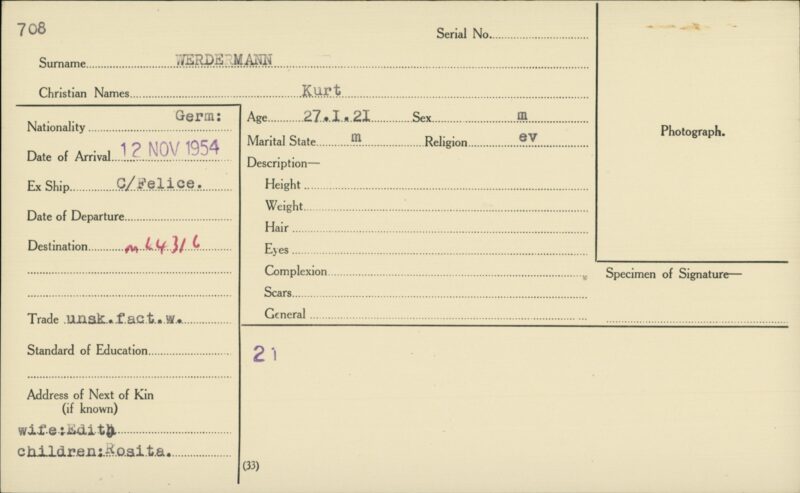 708
Serial No.
Surname WERDERMANN
Christian Names Kurt
Nationality Germ:
Date of Arrival 12 NOV 1954
Ex Ship C/Felice.
Date of Departure
Destination m 64316
Trade unsk.fact.w.
Standard of Education
Address of Next of Kin
(if known)
wife:Edith
children:Rosita.
Age 27.I.2I Sex m
Marital State m Religion ev
Description—
Height
Weight
Hair
Eyes
Complexion
Scars
General
21
(33)
Photograph.
Specimen of Signature—